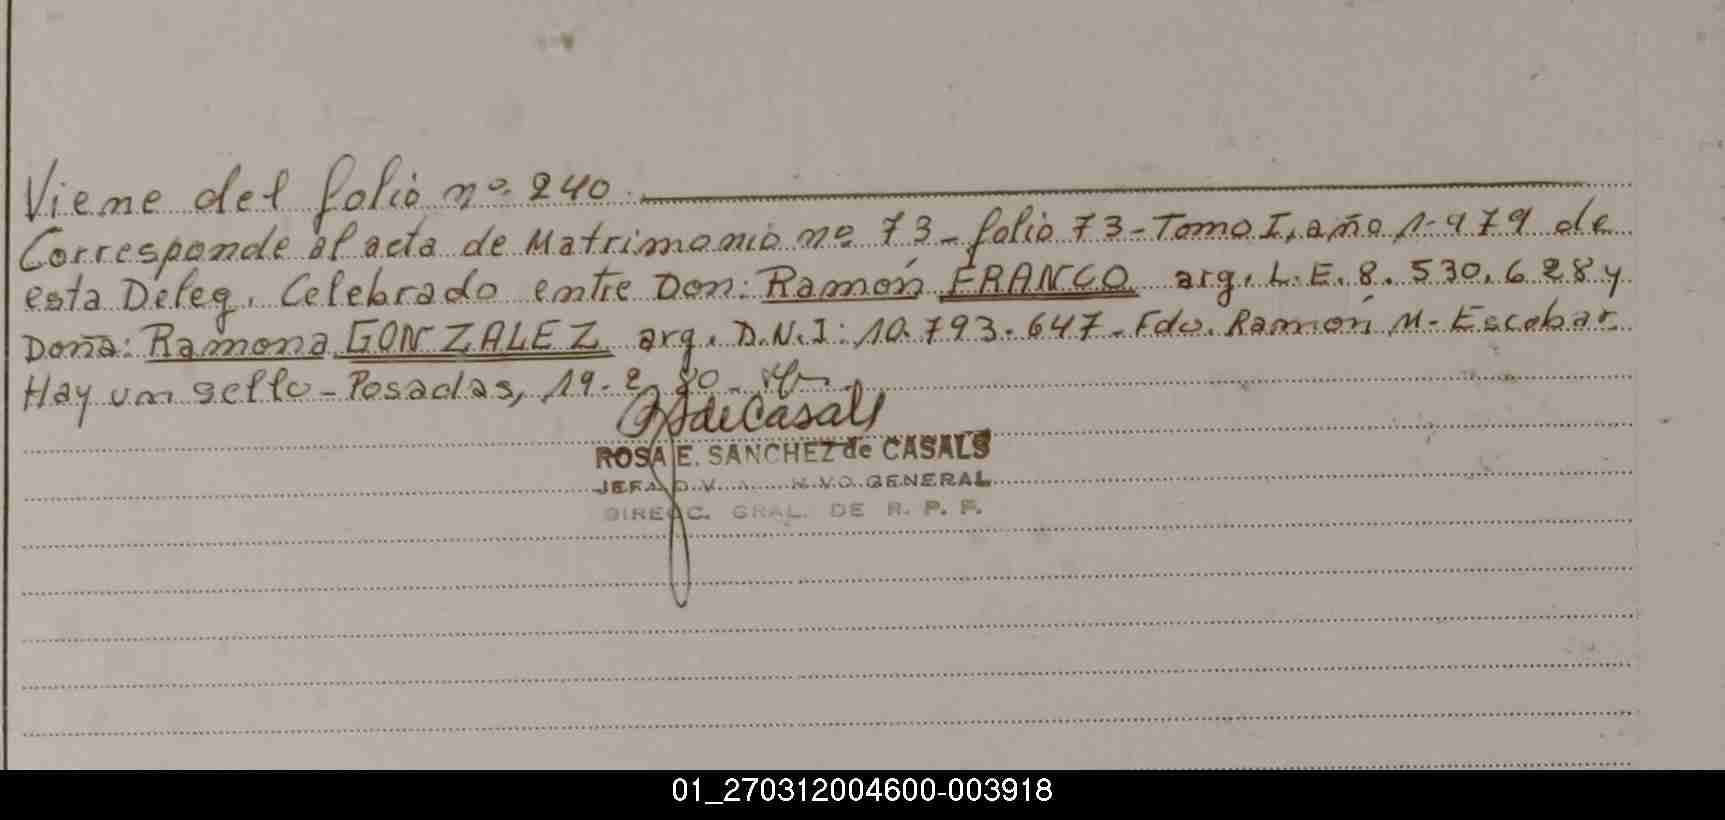 Viene del folio nº 240.
Corresponde al acta de Matrimonio nº 73 - folio 73 - Tomo I, año 1.979 de
esta Deleg. Celebrado entre Don: Ramón FRANCO arg. L.E. 8.530.628 y
Doña: Ramona GONZALEZ arg. D.N.I: 10.793.647 - Fdo. Ramón M. Escobar
Hay un sello - Posadas, 19-2-80 -
de Casals
ROSA E. SANCHEZ de CASALS
JEFA GENERAL
DIREC. GRAL. DE R. P. P.
01_270312004600-003918